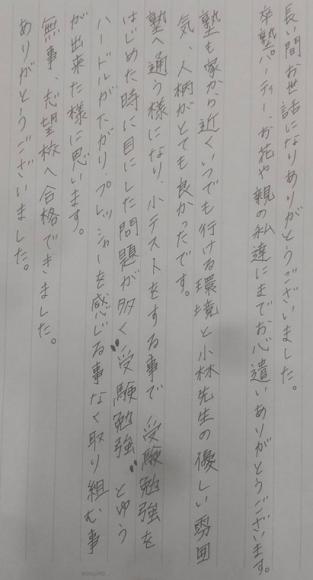 長い間お世話になりありがとうございました。
卒塾パーティー、お花や親の私達にまでお心遣いありがとうございます。
塾も家から近くいつでも行ける環境と小林先生の優しい雰囲
気、人柄がとても良かったです。
塾へ通う様になり、小テストをする事で受験勉強を
はじめた時に目にした問題が多く〝受験勉強〟とゆう
ハードルが下がり、プレッシャーを感じる事なく取り組む事
が出来た様に思います。
無事、志望校へ合格できました。
ありがとうございました。